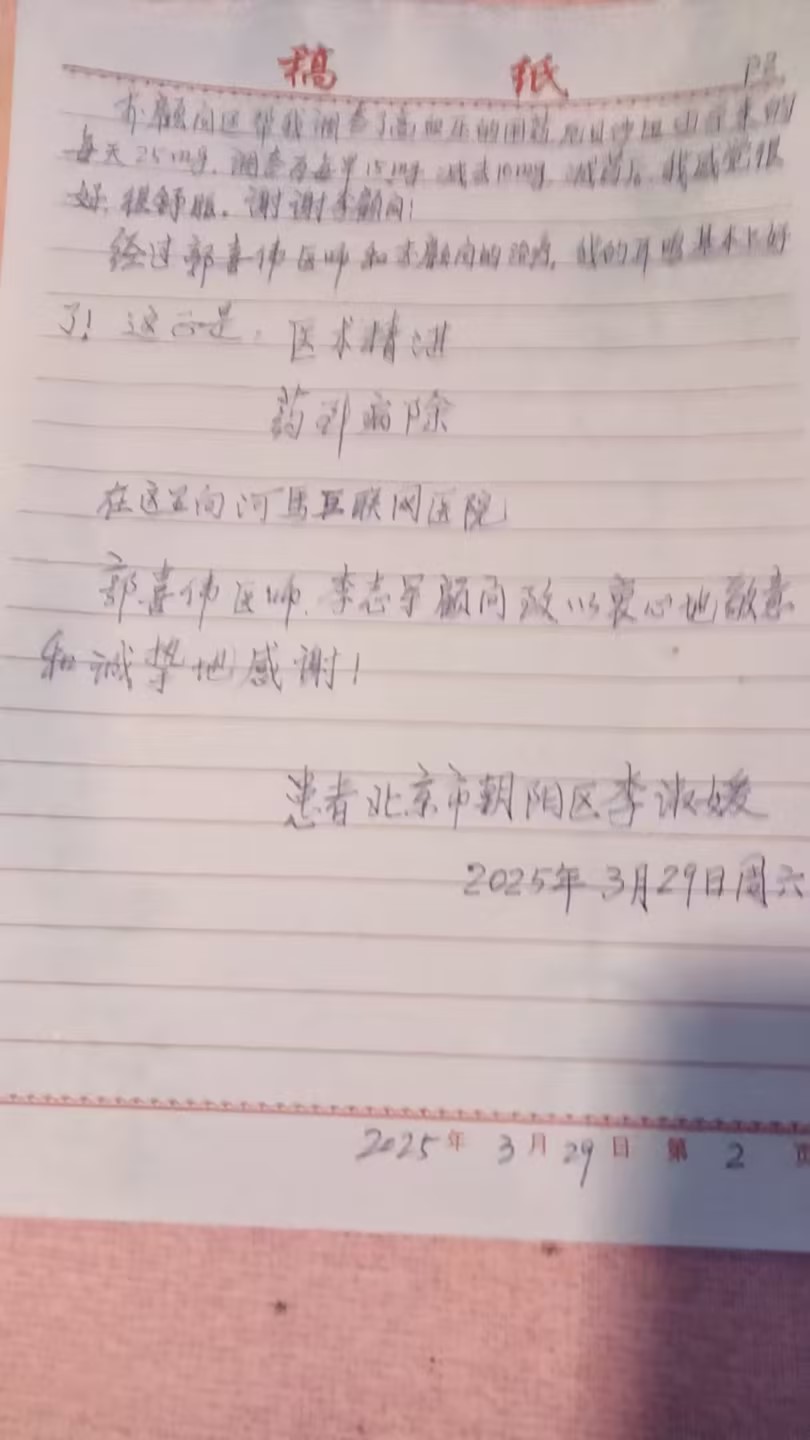 稿 纸 P2.
李顾问还帮我调查了高血压的用药
每天25mg,调查为每早15mg,减去10mg,减药后,我感觉很
好,很舒服。谢谢李顾问!
经过郭喜伟医师和李顾问的治疗,我的 基本上好
了!这正是:医术精湛
药到病除
在这里向河马互联网医院
郭喜伟医师、李志军顾问致以衷心地敬意
和诚挚地感谢!
患者北京市朝阳区李淑媛
2025年3月29日周六
2025年3月29日 第2页